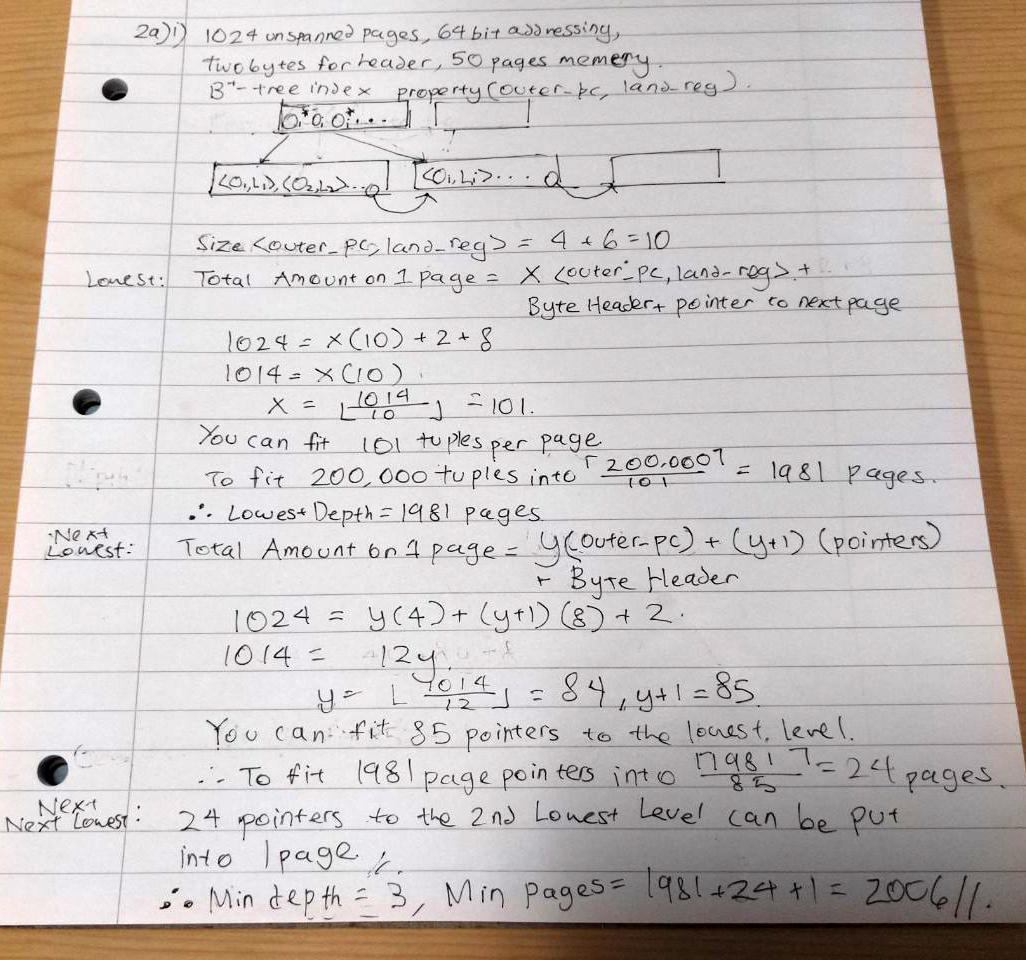 2a)i) 1024 unspanned pages, 64 bit addressing,
two bytes for header, 50 pages memery.
B+-tree index property(outer-pc, land-reg).
O,*O,O,*...
<O1,L1>,<O2,L2>...
<Oi,Li>...
Size <outer_pc, land-reg> = 4 + 6 = 10
Lowest: Total Amount on 1 page = X <outer-pc, land-reg> +
Byte Header + pointer to next page
1024 = X(10) + 2 + 8
1014 = X(10)
X = ⌊1014/10⌋ = 101.
You can fit 101 tuples per page
To fit 200,000 tuples into ⌈200,000/101⌉ = 1981 pages.
∴ Lowest Depth = 1981 pages
Next Lowest: Total Amount on 1 page = y(outer-pc) + (y+1) (pointers)
+ Byte Header
1024 = y(4) + (y+1)(8) + 2.
1014 = 12y
y = ⌊1014/12⌋ = 84, y+1 = 85.
You can fit 85 pointers to the lowest level.
∴ To fit 1981 page pointers into ⌈1981/85⌉ = 24 pages.
Next Next Lowest: 24 pointers to the 2nd Lowest Level can be put
into 1 page
∴ Min depth = 3, Min pages = 1981 + 24 + 1 = 2006//.